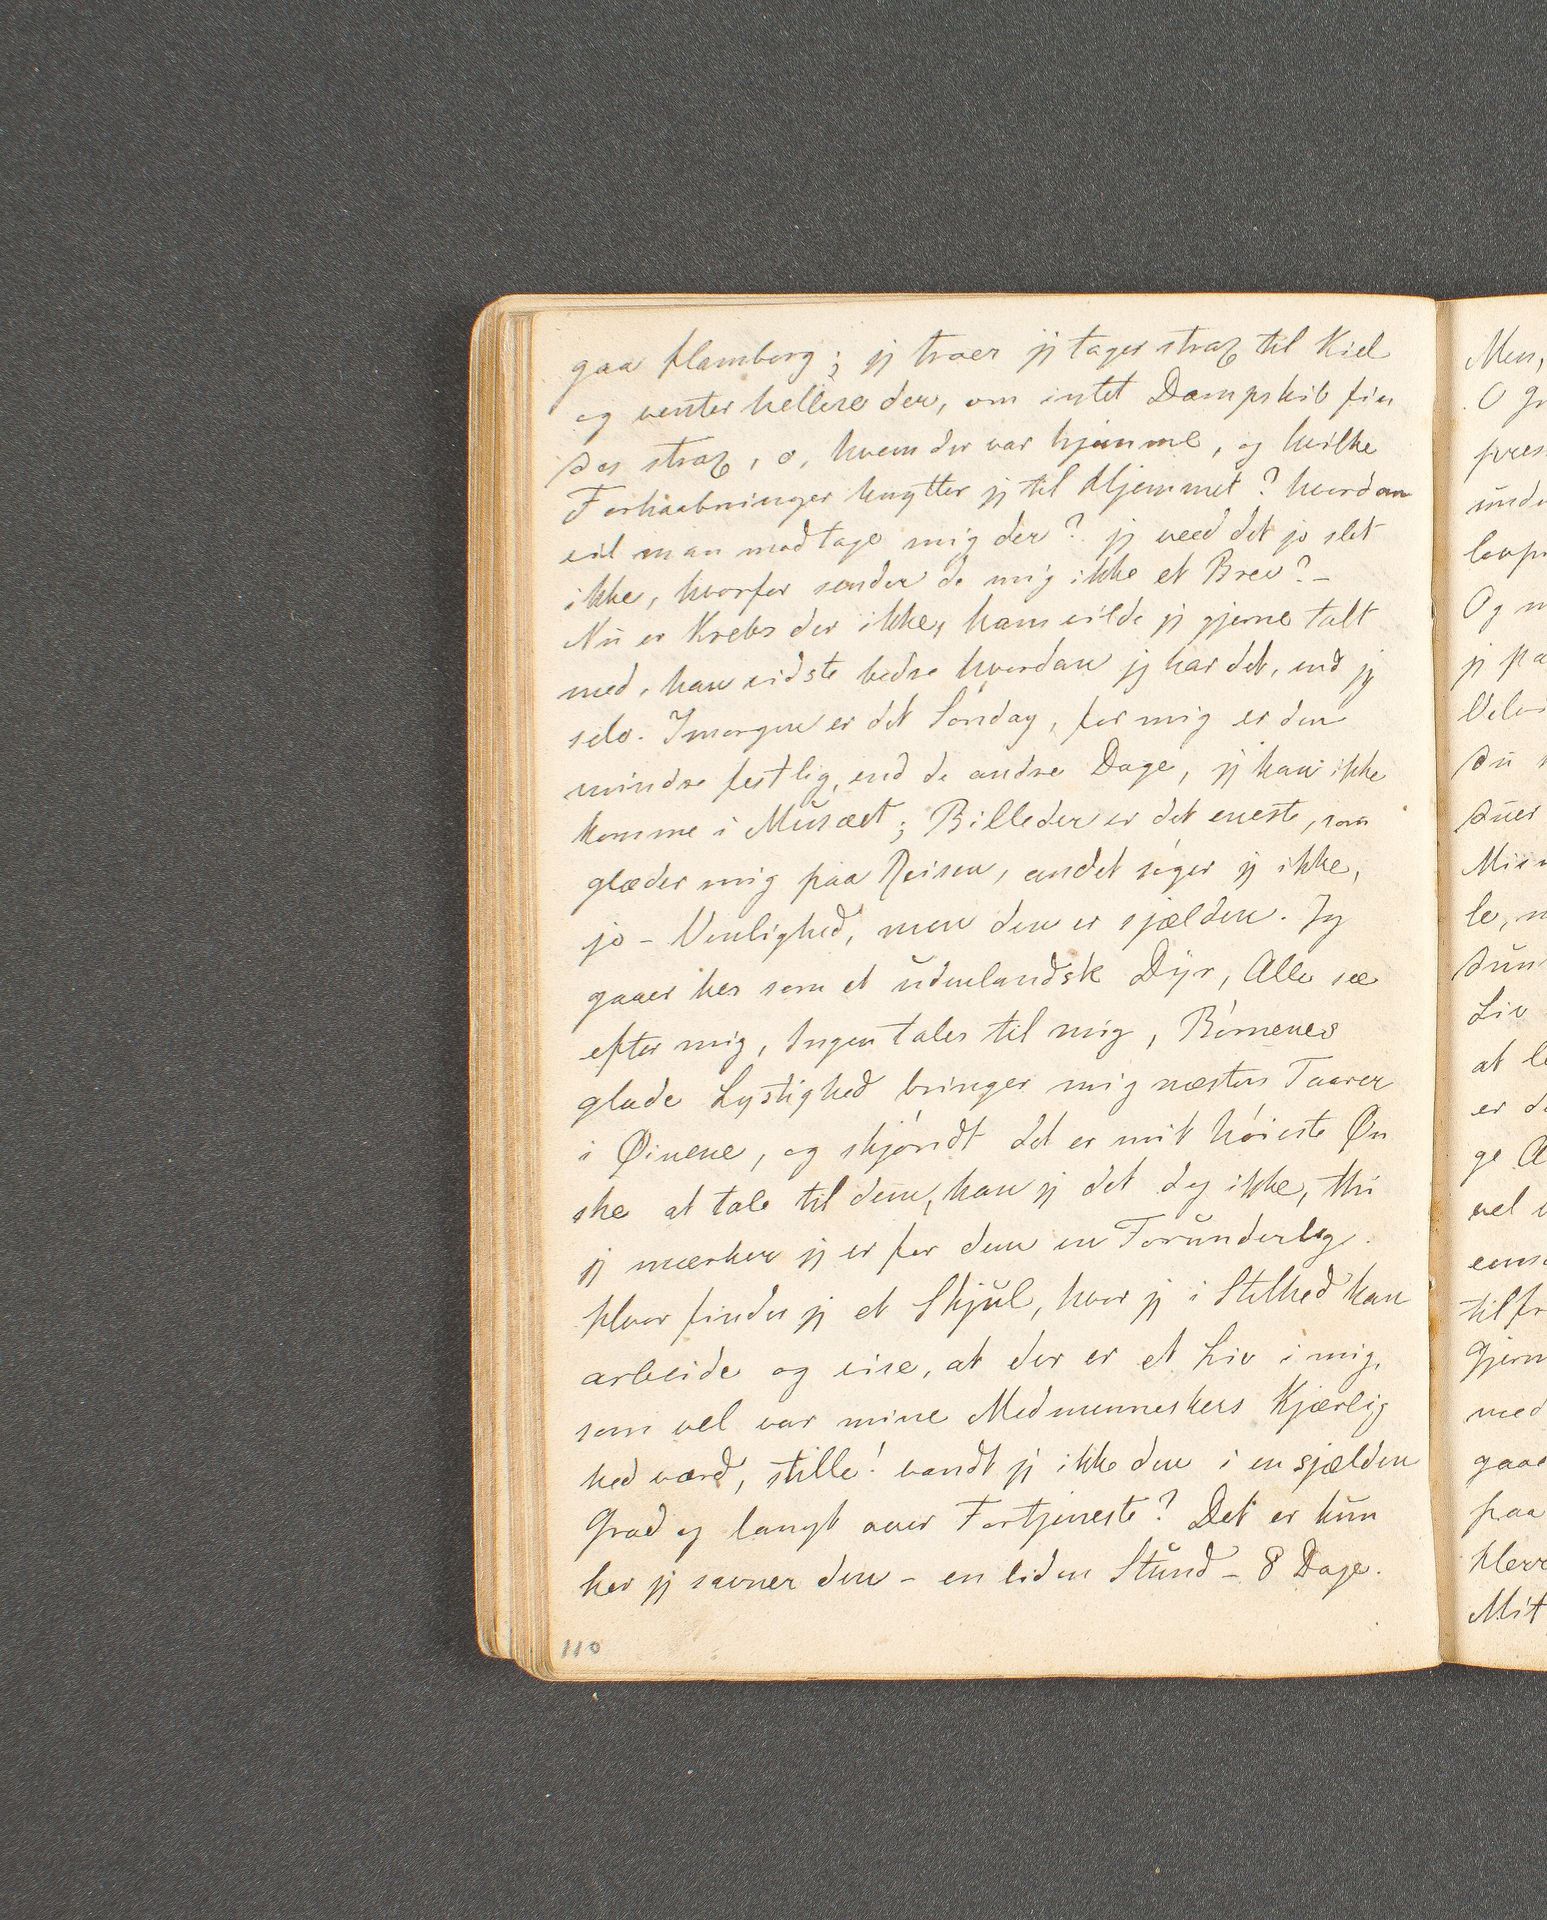 gaa Hamborg; jeg troer jeg tager strax til Kiel
og venter hellere der, om intet Dampskib fin
des strax, o, hvem der var hjemme, og hvilke
Forhaabninger knytter jeg til Hjemmet? hvordan
vil man modtage mig der? jeg veed det jo slet
ikke, hvorfor sender de mig ikke et Brev? –
Nu er Krebs der ikke, ham vilde jeg gjerne talt
med, han vidste bedre hvordan jeg har det, end jeg
selv. Imorgen er det Søndag, for mig er den
mindre festlig, end de andre Dage, jeg kan ikke
komme i Musæet; Billeder er det eneste, som
glæder mig paa Reisen, andet søger jeg ikke,
jo – Venlighed, men den er sjælden. Jeg
gaaer her som et udenlandsk Dyr, Alle see
efter mig, Ingen taler til mig, Børnenes
glade Lystighed bringer mig næsten Taarer
i Øinene, og skjøndt det er mit høieste Øn
ske at tale til dem, kan jeg det dog ikke, thi
jeg mærker jeg er for dem en Forunderlig.
Hvor finder jeg et Skjul, hvor jeg i Stilhed kan
arbeide og vise, at der er et Liv i mig,
som vel var mine Medmenneskers Kjærlig
hed værd, stille! vandt jeg ikke den i en sjælden
Grad og langt over Fortjeneste? Det er kun
her jeg savner den – en liden Stund – 8 Dage.
110
Men,
O
pres
unde
Og
du
duer
le,
Liv
at
er
ge
vel
til
med
paa
Mit